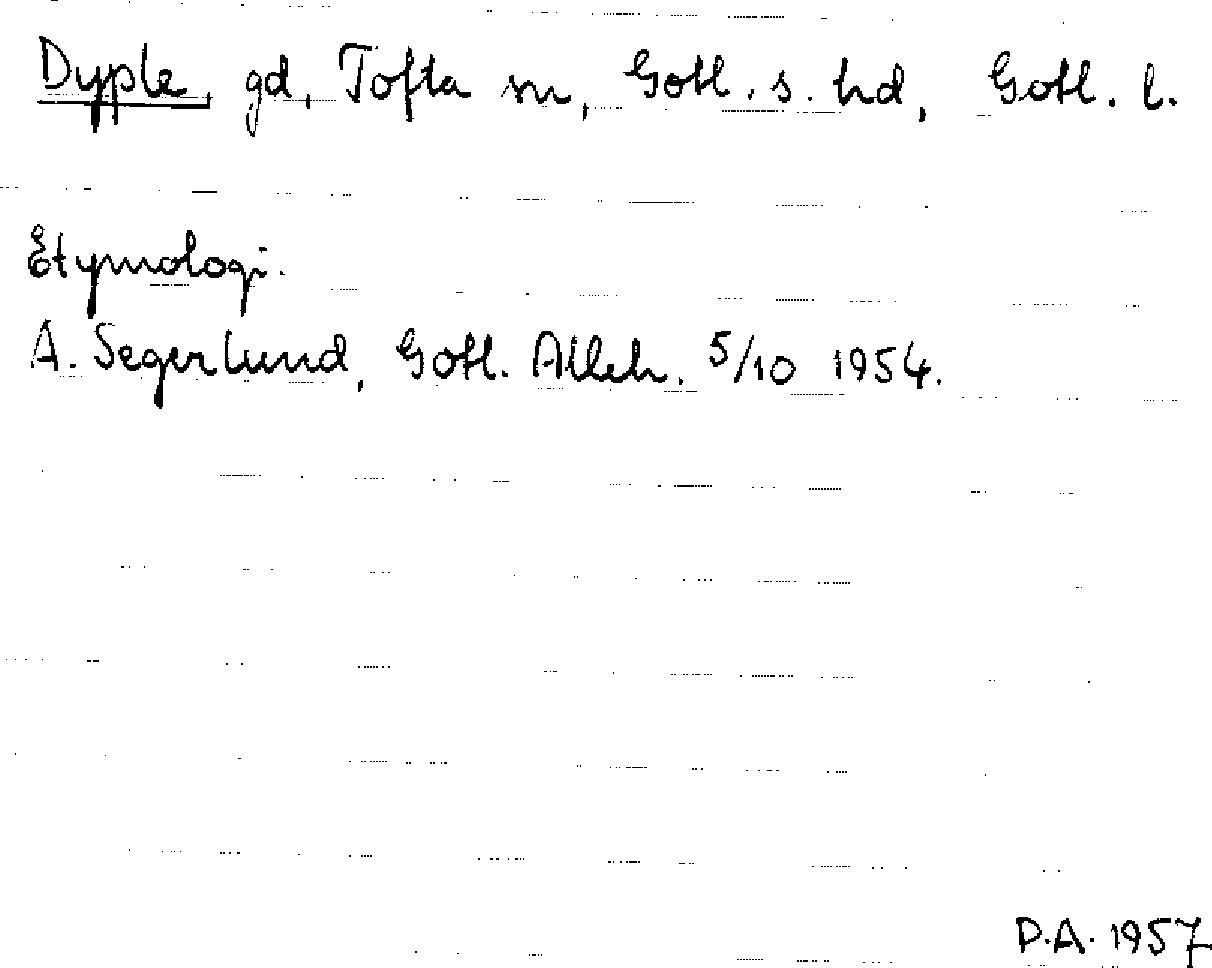 Dyple, gd, Tofta sn, Gotl. s. hd, Gotl. l.
Etymologi.
A. Segerlund, Gotl. Alleh. 5/10 1954.
D.A. 1957